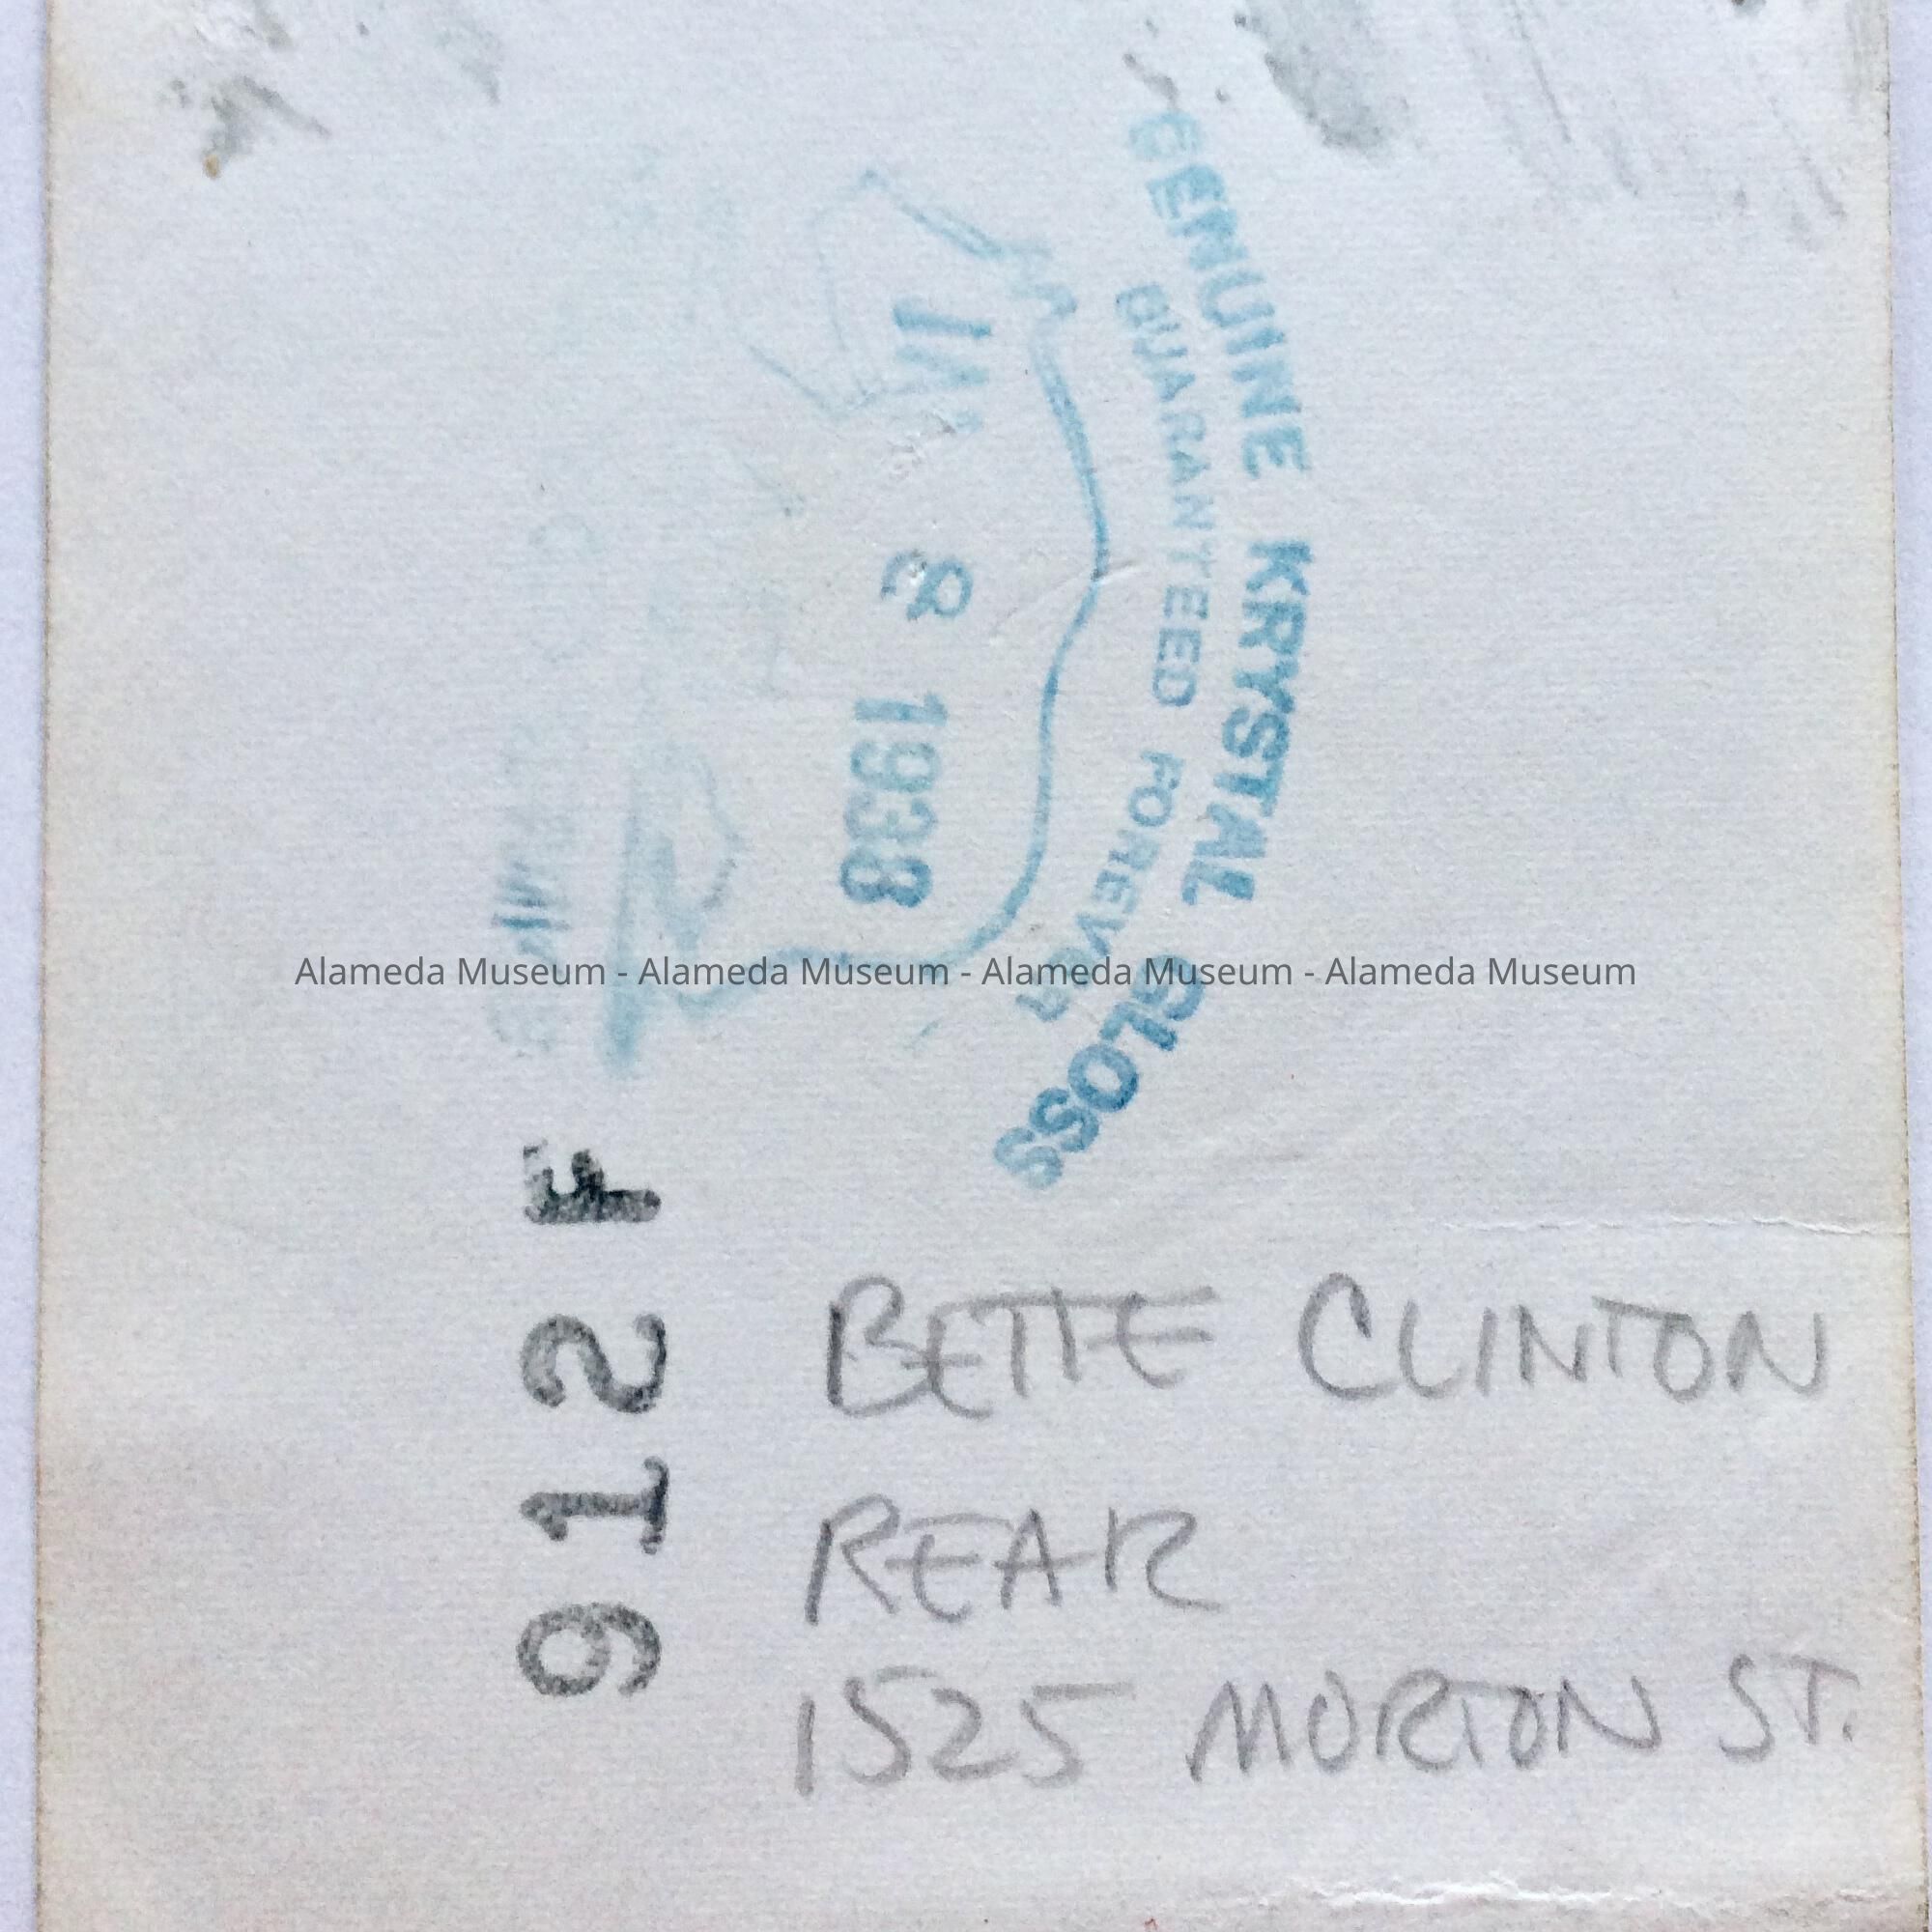 GENUINE KRYSTAL GLOSS
GUARANTEED FOREVER
8 1938
Alameda Museum - Alameda Museum - Alameda Museum - Alameda Museum
912F
BETTE CLINTON
REAR
1525 MORTON ST.